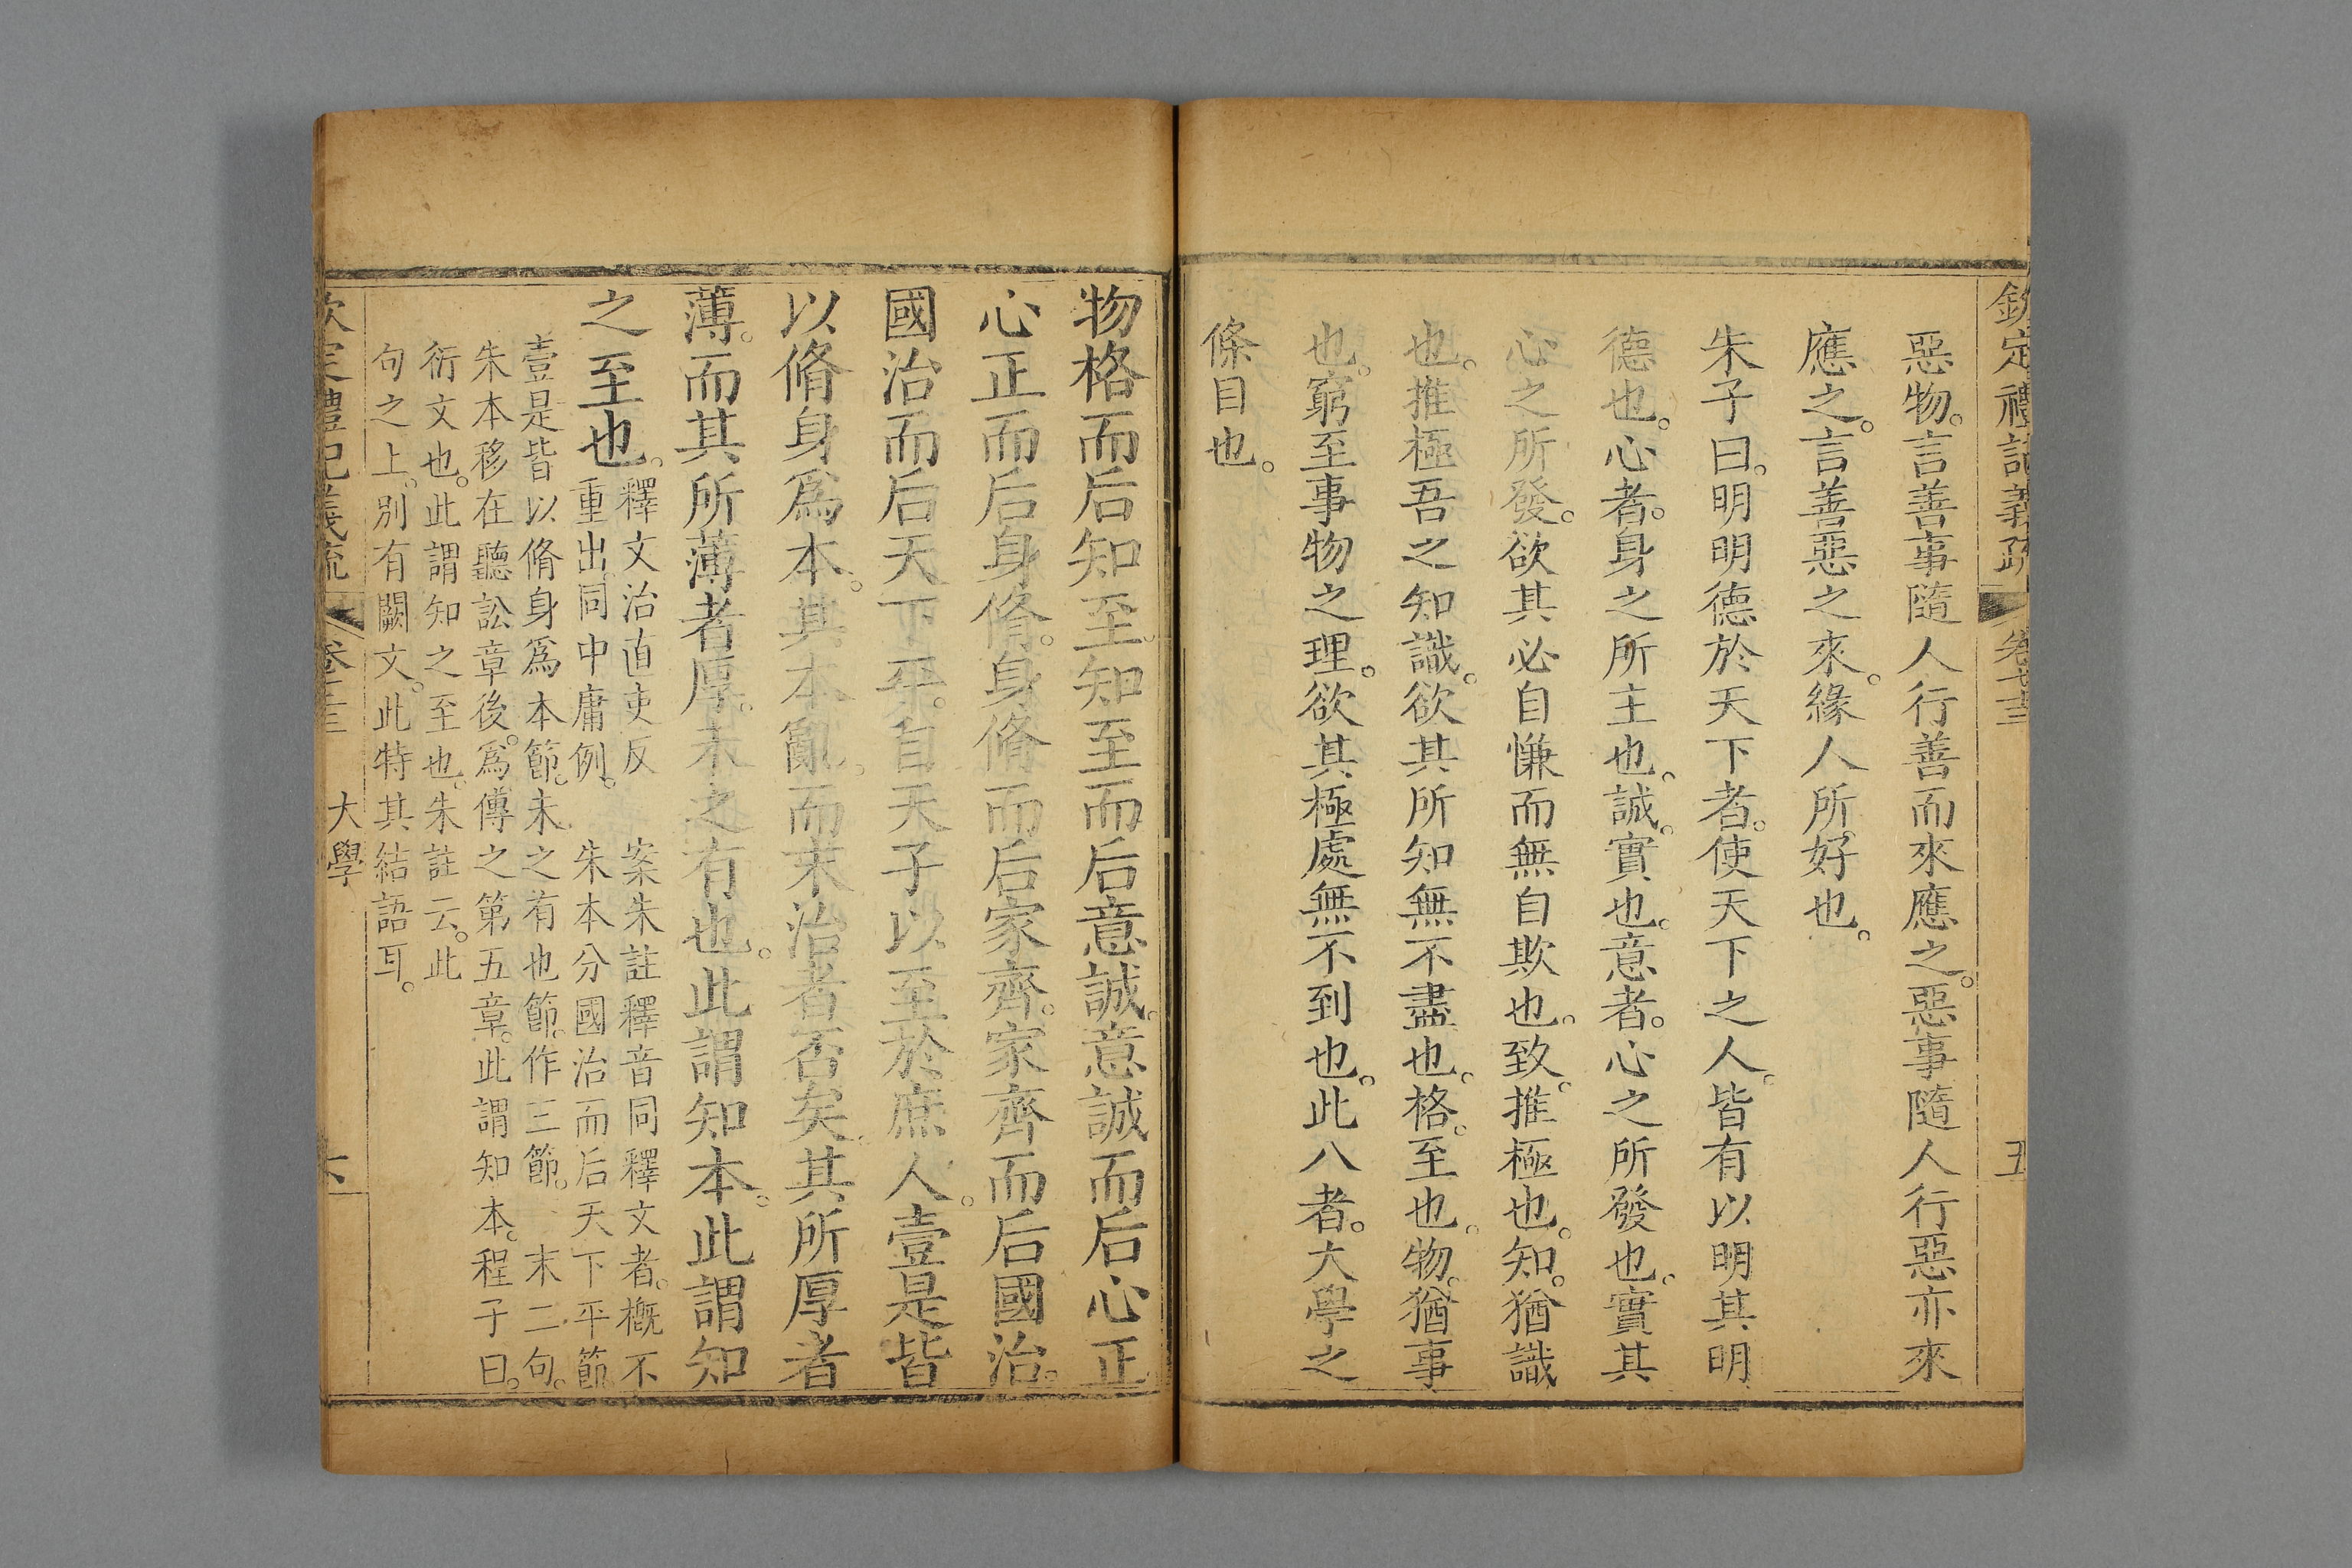 欽定禮記義疏 卷七十三 五
惡物。言善事隨人行善而來應之。惡事隨人行惡亦來
應之。言善惡之來。緣人所好也。
朱子曰。明明德於天下者。使天下之人。皆有以明其明
德也。心者。身之所主也。誠。實也。意者。心之所發也。實其
心之所發。欲其必自慊而無自欺也。致。推極也。知。猶識
也。推極吾之知識。欲其所知無不盡也。格。至也。物。猶事
也。窮至事物之理。欲其極處無不到也。此八者。大學之
條目也。
物格而后知至。知至而后意誠。意誠而后心正
心正而后身脩。身脩而后家齊。家齊而后國治。
國治而后天下平。自天子以至於庶人。壹是皆
以脩身爲本。其本亂。而末治者否矣。其所厚者
薄。而其所薄者厚。未之有也。此謂知本。此謂知
之至也。
釋文治直吏反 案朱註釋音同釋文者。概不
重出。同中庸例。 朱本分國治而后天下平節
壹是皆以脩身爲本節。未之有也節。作三節。 末二句。
朱本移在聽訟章後。爲傳之第五章。此謂知本。程子曰。
衍文也。此謂知之至也。朱註云。此
句之上。別有闕文。此特其結語耳。
欽定禮記義疏 卷七十三 大學 六